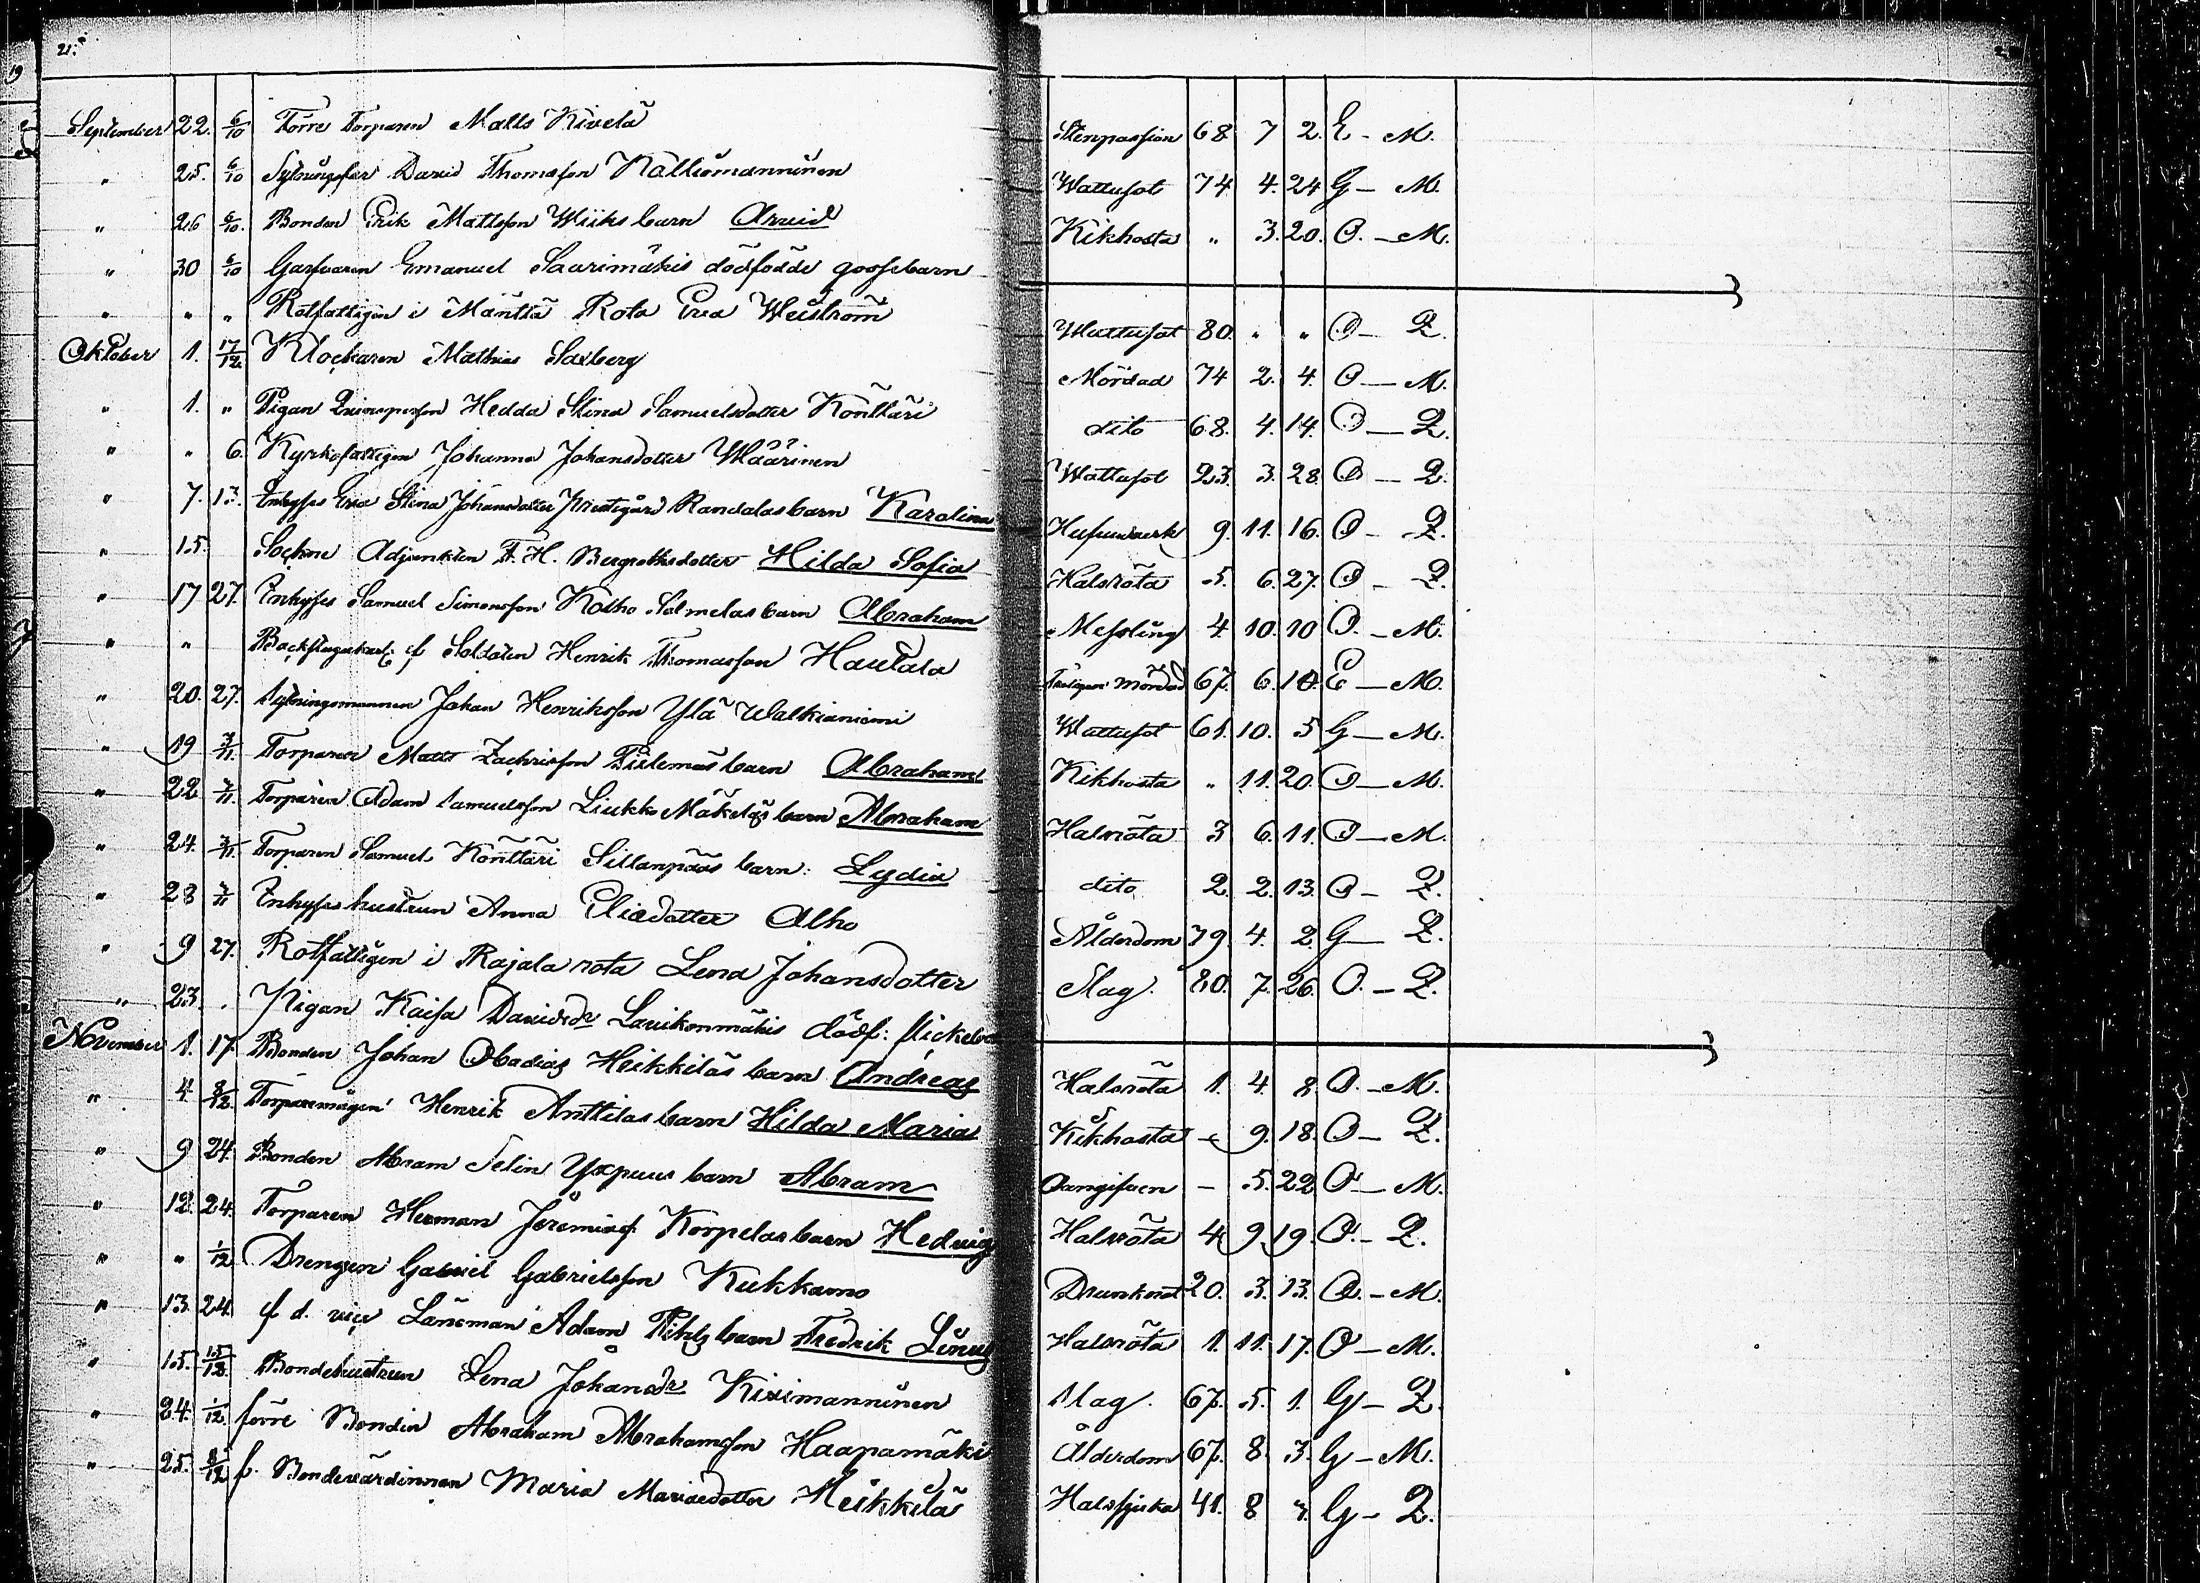 21.
September 22. 6/10 Förre Torparen Matts Kivelä Stenpassion 68. 7 2. E - M.
" 25. 6/10 Sytningsfar David Thomasson Kalliomanninen Wattusot 74 4. 24 G - M.
" 26 6/10. Bonden Erik Mattsson Wiiks barn Arvid Kikhosta " 3. 20. O. - M.
" 30 6/10 Garfvaren Emanuel Saarimäkis dödfödde gossebarn
" " " Rotfattigen i Mänttä Rota Eva Weiström Wattusot 80. " " O - Q.
Oktober 1. 17/12. Klockaren Mathias Saxberg Mördad 74 2. 4. O - M.
" 1. " Pigan Qvinsperson Hedda Stina Samuelsdotter Könttäri dito 68. 4. 14. O - Q.
" " 6. Kyrkofattigen Johanna Johansdotter Määrinen Wattusot 23. 3. 28. O - Q.
" 7. 13. Inhyses Eva Stina Johansdotter Prestgård Randalas barn Karolina Hufvudverk 9. 11. 16. O - Q.
" 15. Sockne Adjunkten F. H. Bergroths dotter Hilda Sofia Halsröta 5. 6. 27. O - Q.
" 17 27. Inhyses Samuel Simonsson Kotho Salmelas barn Abraham Messling 4 10. 10 O. - M.
" " Backstugukarl f Soldaten Henrik Thomasson Hautala Troligen Mördad 67. 6. 10. E - M.
" 20. 27. Sytningsmannen Johan Henriksson Ylä Walkianiemi Wattusot 61. 10. 5 G - M.
" 19 3/11. Torparen Matts Zachrisson Piilemäs barn Abraham Kikhosta " 11. 20. O - M.
" 22 3/11. Torparen Adam Samuelsson Liukko Mäkeläs barn Abraham Halsröta 3 6. 11. O - M.
" 24. 3/11. Torparen Samuel Könttäri Sillanpääs barn: Lydia dito 2. 2. 13. O - Q.
" 28 3/11 Inhyses hustrun Anna Eliasdotter Alho Ålderdom 79. 4. 2. G - Q.
" 9 27. Rotfattigen i Rajala rota Lena Johansdotter Slag. 80. 7. 26. O. - Q.
" 23. . Pigan Kaisa Davidsdr Laurikonmäkis dödf: flickebarn
November 1. 17. Bonden Johan Obadias Heikkiläs barn Andreas Halsröta 1. 4. 8. O. - M.
" 4 8/12. Torparemågen Henrik Anttilas barn Hilda Maria Kikhosta - 9. 18. O - Q.
" 9 24. Bonden Abram Selin Yxpuus barn Abram Oangifven - 5. 22 O - M.
" 12. 24. Torparen Herman Jeremiass. Korpelas barn Hedvig Halsröta 4 9. 19. O. - Q.
" " 1/12 Drengen Gabriel Gabrielsson Kukkamo Drunknat 20. 3. 13. O. - M.
" 13. 24. f d. vice Länsman Adam Pihls barn Fredrik Linus Halsröta 1. 11. 17. O - M.
" 15. 15/12. Bondehustrun Lena Johansdr Kivimanninen Slag. 67. 5. 1. G - Q.
" 24. 1/12. förre Bonden Abraham Abrahamsson Haapamäki Ålderdom 67. 8. 3. G - M.
" 25. 8/12 f. Bondevärdinnan Maria Mariasdotter Heikkilä Halssjuka 41. 8 7. G - Q.